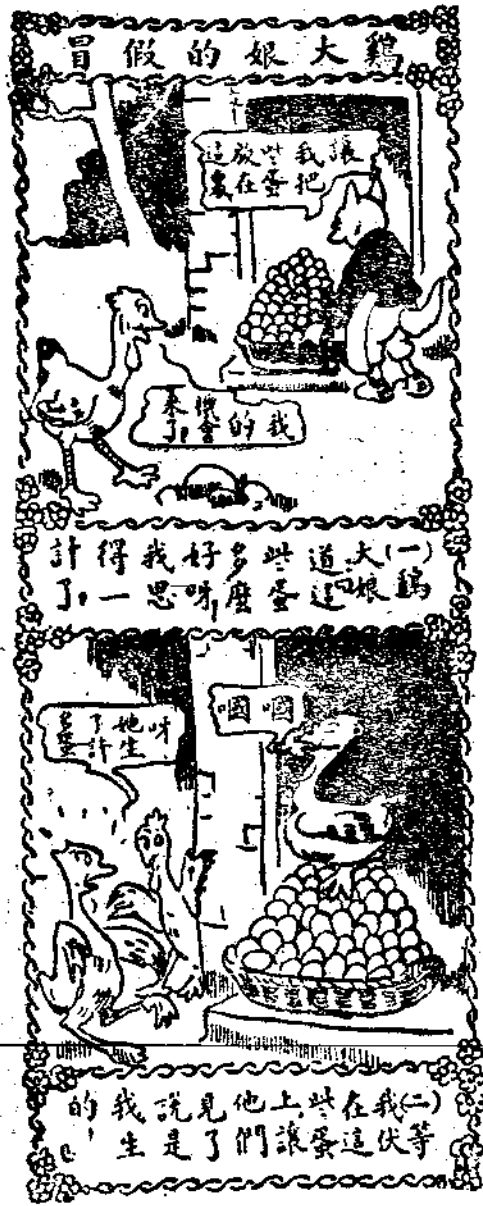 鷄大娘的假冒
讓
我把
些蛋
放在
這裏
我
的
機會
來了,
(一)鷄
大娘
道:這
些蛋
多麼
好呀,
我思
得一
計了,
嘓
嘓
呀
她生
了許
多蛋
(二)等
我伏
在這
些蛋
上,讓
他們
見了
說是
我生
的,